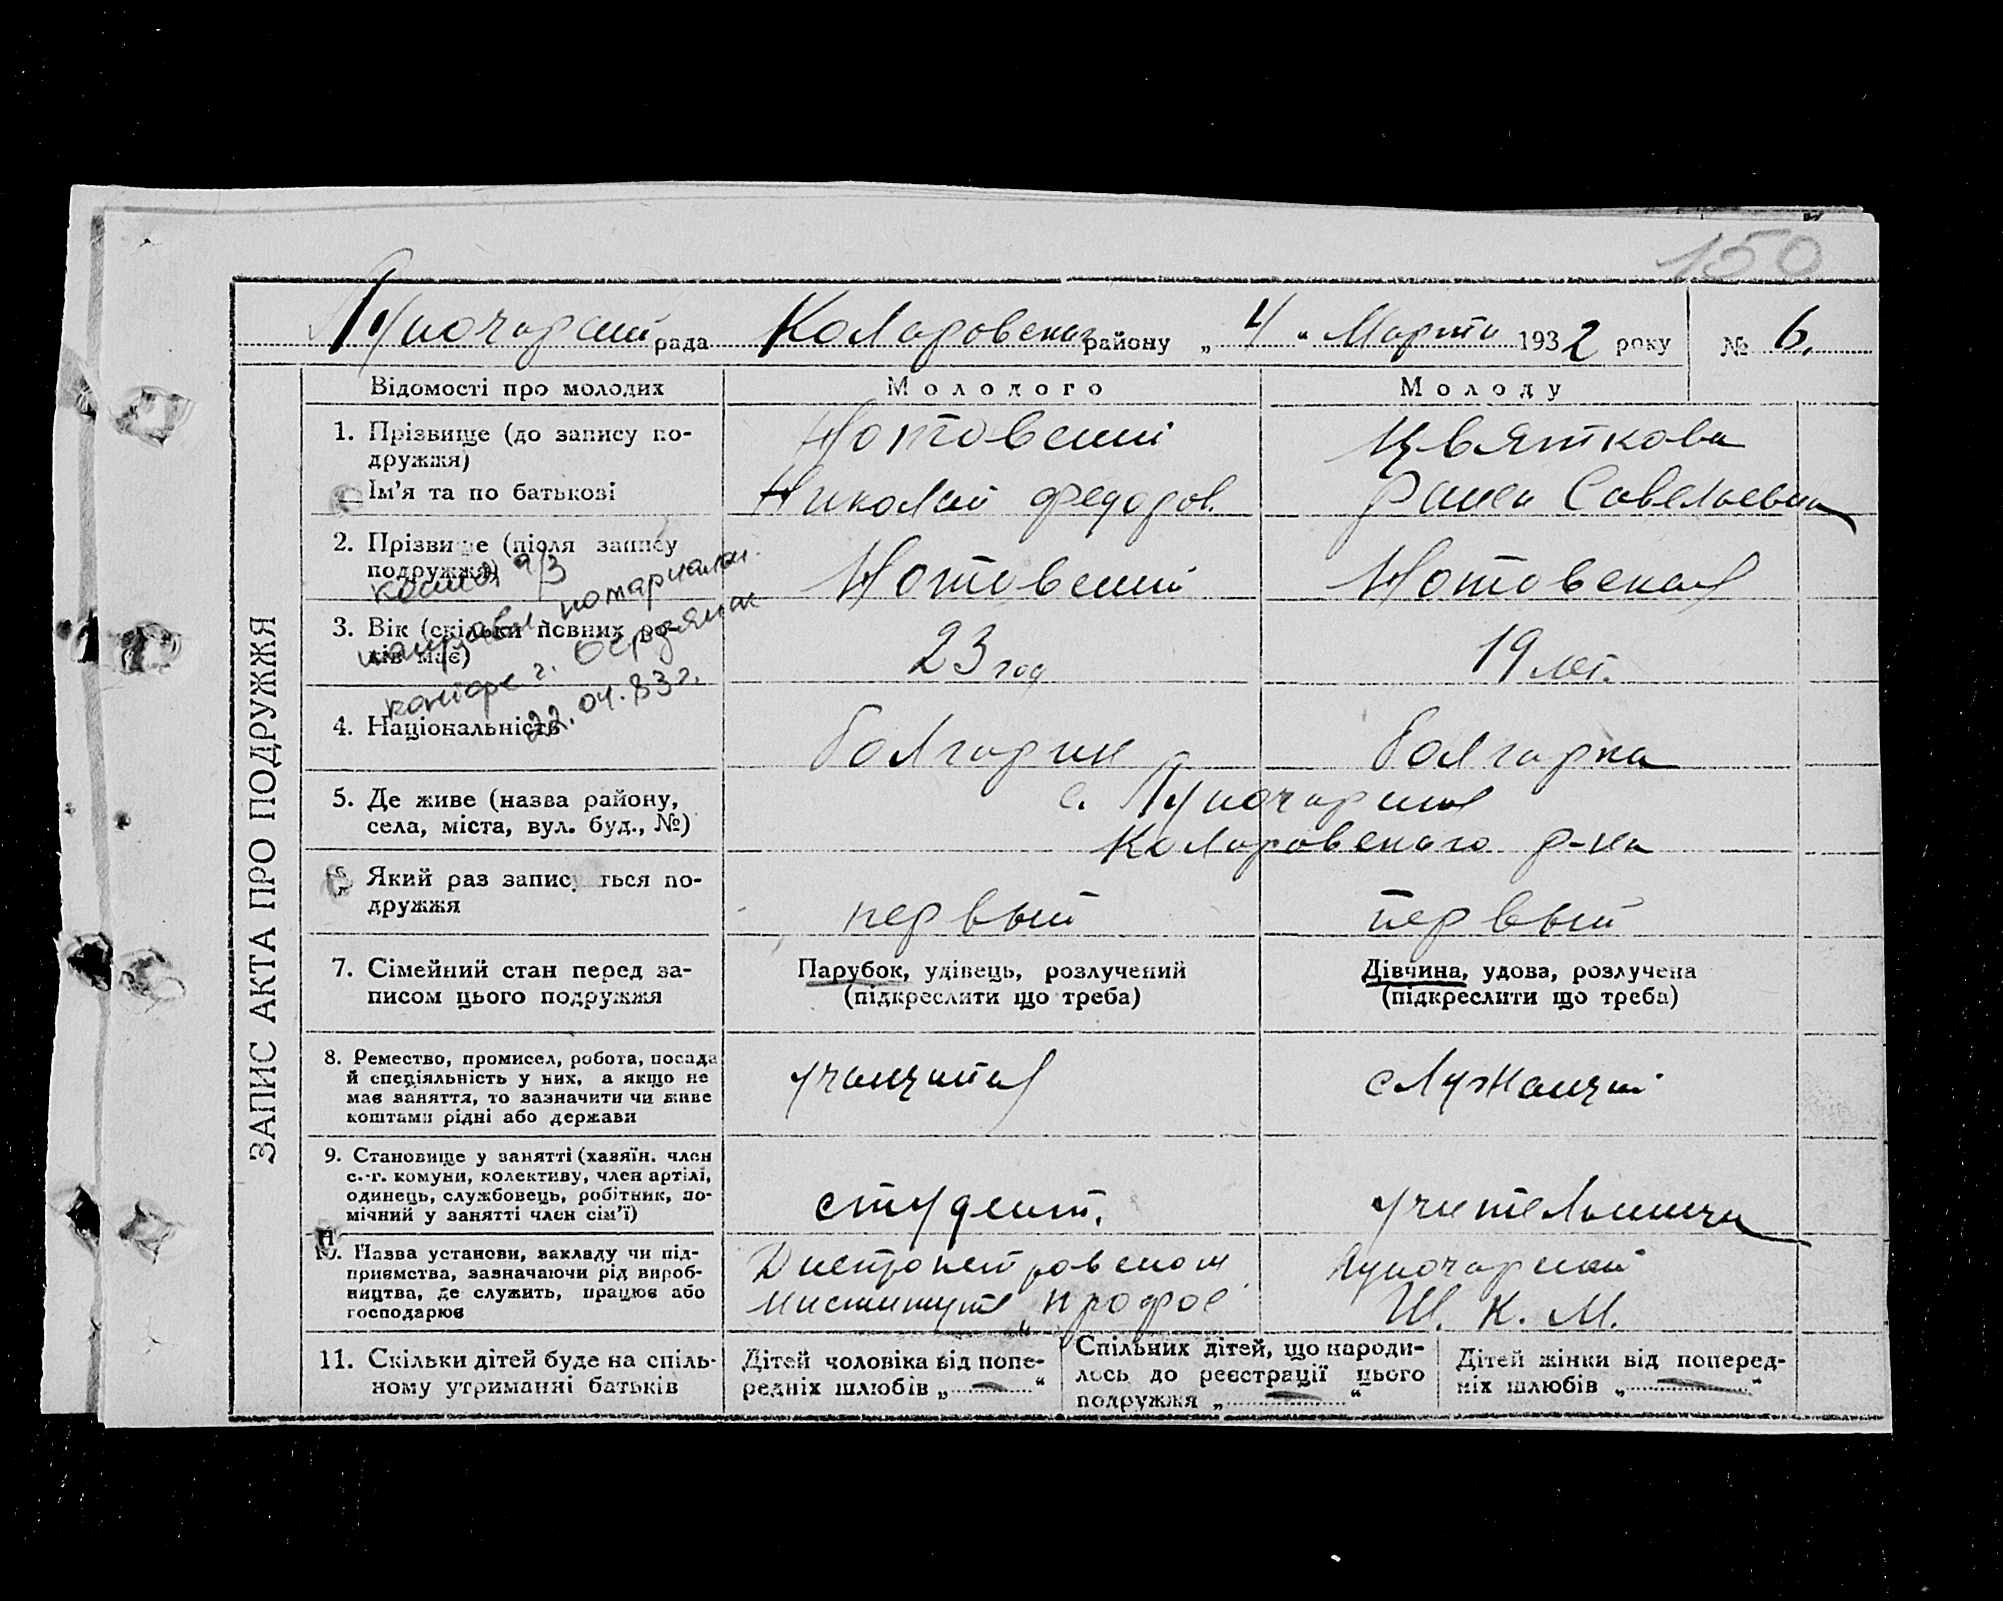 150
Луночарский рада Коларовского району „ 4 “ Марта 1932 року № 6.
ЗАПИС АКТА ПРО ПОДРУЖЖЯ
Відомості про молодих Молодого Молоду
1. Прізвище (до запису по- Нотовский Цвяткова
дружжя)
Ім'я та по батькові Николай Федоров. Раиса Савельевна
2. Прізвище (після запису
подружжя) Нотовский Нотовская
копия а/з
направл нотариальн.
конторе г. Бердянск
22.04.83 г.
3. Вік (скільки повних ро-
ків має) 23 год 19 лет.
4. Національність болгарин болгарка
5. Де живе (назва району, с. Луночарское
села, міста, вул. буд., №) Коларовского р-на
6. Який раз записується по-
дружжя первый первый
7. Сімейний стан перед за- Парубок, удівець, розлучений Дівчина, удова, розлучена
писом цього подружжя (підкреслити що треба) (підкреслити що треба)
8. Ремество, промисел, робота, посада
й спеціяльність у них, а якщо не учащийся служащий
має заняття, то зазначити чи живе
коштами рідні або держави
9. Становище у занятті (хазяїн. член
с.-г. комуни, колективу, член артілі,
одинець, службовець, робітник, по- студент. учительница
мічний у занятті член сім'ї)
10. Назва установи, закладу чи під- Днепропетровском Луночарский
приємства, зазначаючи рід вироб-
ництва, де служить, працює або Институте „Профос“ Ш. К. М.
господарює
11. Скільки дітей буде на спіль- Дітей чоловіка від попе- Спільних дітей, що народи- Дітей жінки від поперед-
ному утриманні батьків редніх шлюбів „ — “ лось до реєстрації цього ніх шлюбів „ — “
подружжя „ — “